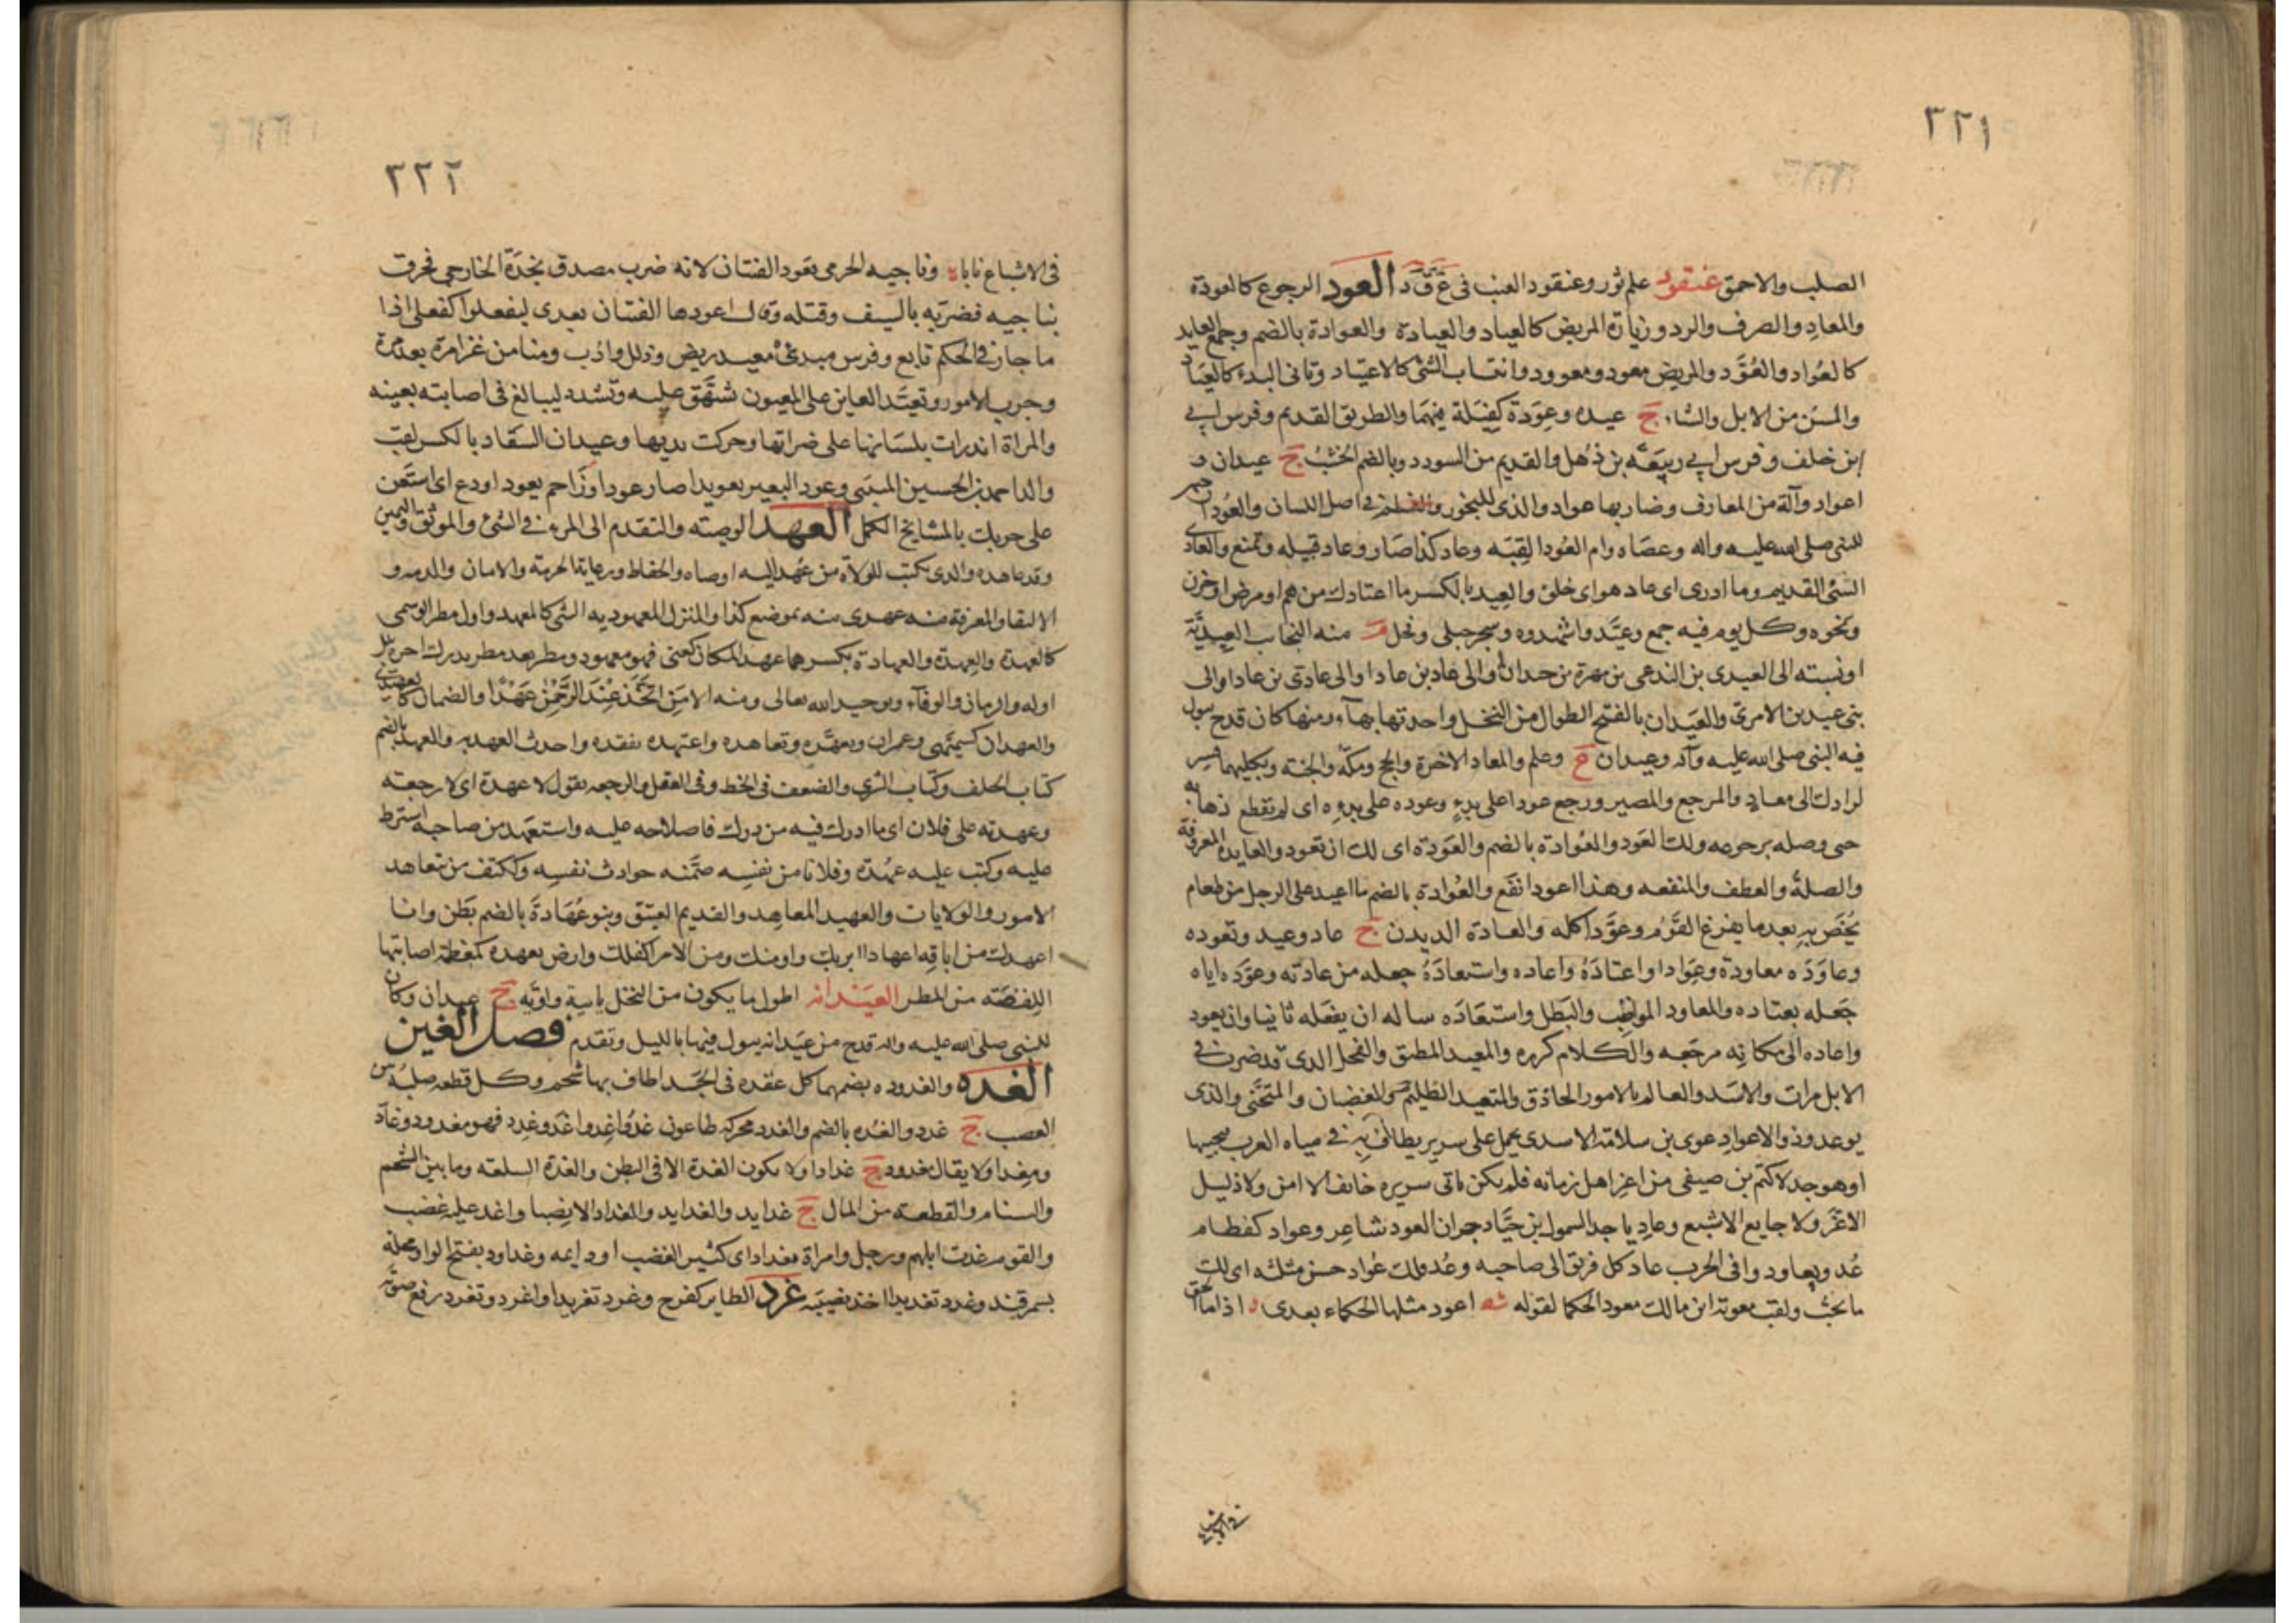 ٣٢١
الصلب والاحمق عنقود علم ثور وعنقود العنب فى ع ق د العود الرجوع كالعودة
والمعاد والصرف والرد وزيارة المريض كالعياد والعيادة والعوادة بالضم وجمع العايد
كالعواد والعُوَّد والمريض معود ومعوود وانتياب الشئ كالاعتياد وثانى البدء كالعياد
والمسن من الابل والشاء ج عيده وعِوَدة كفِيَلة فيهما والطريق القديم وفرس ابي
ابن خلف وفرس ابي ربيعة بن ذهل والقديم من السودد وبالضم الخشب ج عيدان و
اعواد وآلة من المعازف وضاربها عواد والذى للبخور والعظم فى اصل اللسان والعُودان
للنبى صلى الله عليه واله وعصاه وام العُود القِبَه وعاد كذا صار وعاد قبيله وتمنع والعادى
الشئ القديم وما ادرى اى عاد هو اى خلق والعيد بالكسر ما اعتادك من هم او مرض او حزن
ونحوه وكل يوم فيه جمع وعيَّدوا شهدوه وشجر جبلى وفحل م منه النجايب العِيديَّة
او نسبته الى العيدى بن الندعى بن مهرة بن حيدان او الى عاد بن عاد او الى عادى بن عاد او الى
بنى عيد بن الامرى والعَيدان بالفتح الطوال من النخل واحدتها بهاء ومنها كان قدح يبول
فيه النبى صلى الله عليه وآله وعيدان ع وعلم والمعاد الاخرة والحج ومكة والجنة وبكليهما فسر
لرادك الى معاد والمرجع والمصير ورجع عودا على بدءٍ وعوده على بدءِه اى لم يقطع ذهابه
حتى وصله برجوعه ولك العَود والعُوادة بالضم والعَودة اى لك ان تعود والعايدة المعروف
والصلة والعطف والمنفعه وهذا اعود انفع والعُوادة بالضم ما اعيد على الرجل من طعام
يُخَص به بعد ما يفرغ القوم وعوَّد اكله والعادة الديدن ج عاد وعيد وتعوده
وعاوَدَه معاودة وعِوادا واعتادَهُ واعاده واستعادَهُ جعله من عادته وعوّده اياه
جَعَله يعتاده والمعاود المواظِب والبَطَل واستعَادَه ساله ان يفعَله ثانيا وان يعود
واعاده الى مكانه مرجعه والكلام كرره والمعيد المطيق والفحل الذى قد ضرب فى
الابل مرات والاسَد والعالم بالامور الحاذق والمتعيد الظلوم والغضبان والمتجَنّى والذى
يوعد وذو الاعواد عوى بن سلامة الاسدى يحمل على سرير يطاف به فى مياه العرب يجبيها
او هو جد لاكثم بن صيفى من اعز اهل زمانه فلم يكن ياتى سريره خائف الا امن ولا ذليل
الا عزّ ولا جايع الا شبع وعادياء جد السموال بن حيَّا وجران العود شاعر وعواد كفطام
عُد وتعاودوا فى الحرب عاد كل فريق الى صاحبه وعُد ولك عُواد حسن مثلثه اى لك
ما تحب ولقب معوية ابن مالك معود الحكما لقوله شعر اعود مثلها الحكماء بعدى اذا ما الحق
فى الاشياع
٣٢٢
فى الاشياع نابا وناجيه الجرمى بعود الفتيان لانه ضرب مصدق نجدة الخارجى فخرق
بناجيه فضربه بالسيف وقتله وقال اعودها الفتيان بعدى ليفعلوا كفعلى اذا
ما جار فى الحكم تابع وفرس مبدئ معيد ريض وذلل وادب ومنا من غزا مرة بعد مرة
وجرب الامور وتعيَّد العاين على المعيون شَهَق عليه وتشدد ليبالغ فى اصابته بعينه
والمراة اندرات بلسَانها على ضراتها وحركت يديها وعيدان السقاء بالكسر لقب
والد احمد بن الحسين المتنبى وعود البعير تعويدا صار عودا وزاحم بعود او دع اى استعن
على حربك بالمشايخ الكمل العهد الوصية والتقدم الى المرء فى الشئ والموثق واليمين
وقد عاهده والذى يكتب للولاة من عَهِد اليه اوصاه والحفاظ ورعاية الحرمة والامان والذمه و
الالتقا والمعرفة منه عهدى به بموضع كذا والمنزل المعهود به الشئ كالمعهد واول مطر الوسمى
كالعهدة والعِهدة والعهادة بكسرهما عهد المكان كعنى فهو معهود ومطر بعد مطر يدرك اخره بلل
اوله والزمان والوفاء وتوحيد الله تعالى ومنه الا من اتَّخَذَ عِندَ الرَّحْمٰنِ عَهْدًا والضمان كالعهيدى
والعهدان كسُمَّيهى وعمران وتعهَّده وتعاهده واعتهده تفقده واحدث العهد به والعهدة بالضم
كتاب الحلف وكتاب الشرى والضعف فى الخط وفى العقل والرجعه تقول لا عهدة اى لا رجعة
وعهدته على فلان اى ما ادرك فيه من درك فاصلاحه عليه واستعهد من صاحبه اشترط
عليه وكتب عليه عُهدة وفلانا من نفسِه ضمّنه حوادث نفسِه وككتف من يتعاهد
الامور والولايات والعهيد المعاهد والقديم العتيق وبنو عُهَادةَ بالضم بَطن وانا
اعهدك من اباقه اعهادا ابريك واومنك ومن الامر اكفلك وارض معهدة كمعظمة اصابتها
النفضة من المطر العيدانه اطول ما يكون من النخل يايية واويّه ج عيدان وكان
للنبى صلى الله عليه واله قدح من عيدانه يبول فيها بالليل وتقدم فصل الغين
الغده والغدوده بضمهما كل عقده فى الجَسَد اطاف بها شحم وكل قطعه صلبة من
العصب ج غدد والغُده بالضم والغدد محركه طاعون غُدَّ واغدّ واغُدّ وغُدِد فهو مغدود وغادّ
ومغِد ولا يقال مغدود ج غداد او لا يكون الغدة الا فى البطن والغدة السلعه وما بين الشحم
والسنام والقطعة من المال ج غدايد والغدايد والغداد الانصبا واغد عليه غضب
والقوم غدت ابلهم ورجل وامراة مغداد اى كثير الغضب او دايمه وغداود بفتح الواو محلة
بسمرقند وغدد تغديدا اخذ نصيبَه غرد الطاير كفرح وغرد تغريدا واغرد وتغرد رفع صوته